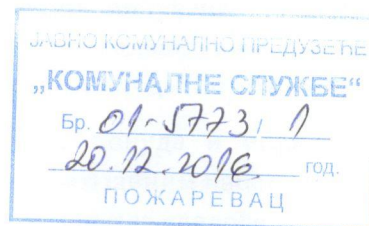 ЈАВНО КОМУНАЛНО ПРЕДУЗЕЋЕ
„КОМУНАЛНЕ СЛУЖБЕ“
Бр. 01-5773/1
20.12.2016 год.
ПОЖАРЕВАЦ